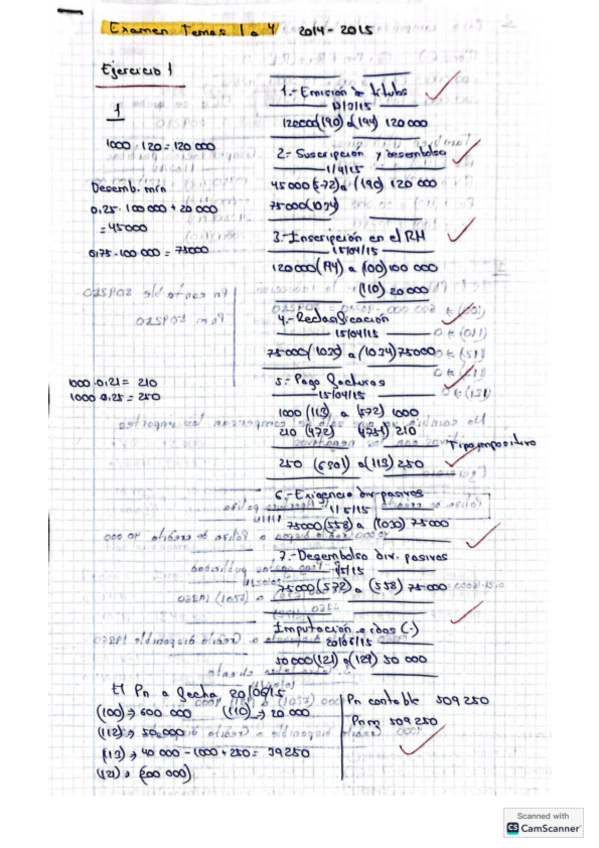 Examen Temas 1 a 4 2014-2015
Ejercicio 1
1
1000 · 120 = 120 000
Desemb. mín
0,25 · 100 000 + 20 000
= 45000
0,75 · 100 000 = 75000
1.- Emisión de títulos
120000 (190) a (194) 120 000
2.- Suscripción y desembolso
1/4/15
45 000 (572) a (190) 120 000
75000 (1034)
3.- Inscripción en el RM
15/04/15
120 000 (194) a (100) 100 000
(110) 20 000
4.- Reclasificación
15/04/15
75000 (1030) a (1034) 75000
1000 · 0,21 = 210
1000 · 0,25 = 250
5.- Pago facturas
15/04/15
1000 (113) a (572) 1000
210 (472) (4751) 210
Tipo impositivo
250 (6301) a (113) 250
6.- Exigencia div. pasivos
1/5/15
75000 (558) a (1030) 75000
7.- Desembolso div. pasivos
75000 (572) a (558) 75 000
Imputación (-)
20/06/15
50 000 (121) a (129) 50 000
El Pn a fecha 20/06/15
(100) → 600 000 (110) → 20 000
(112) → 50 000
(113) → 40 000 - 1000 + 250 = 39250
(121) → (200 000)
Pn contable 509 250
Pn m 509 250
Scanned with
CS CamScanner